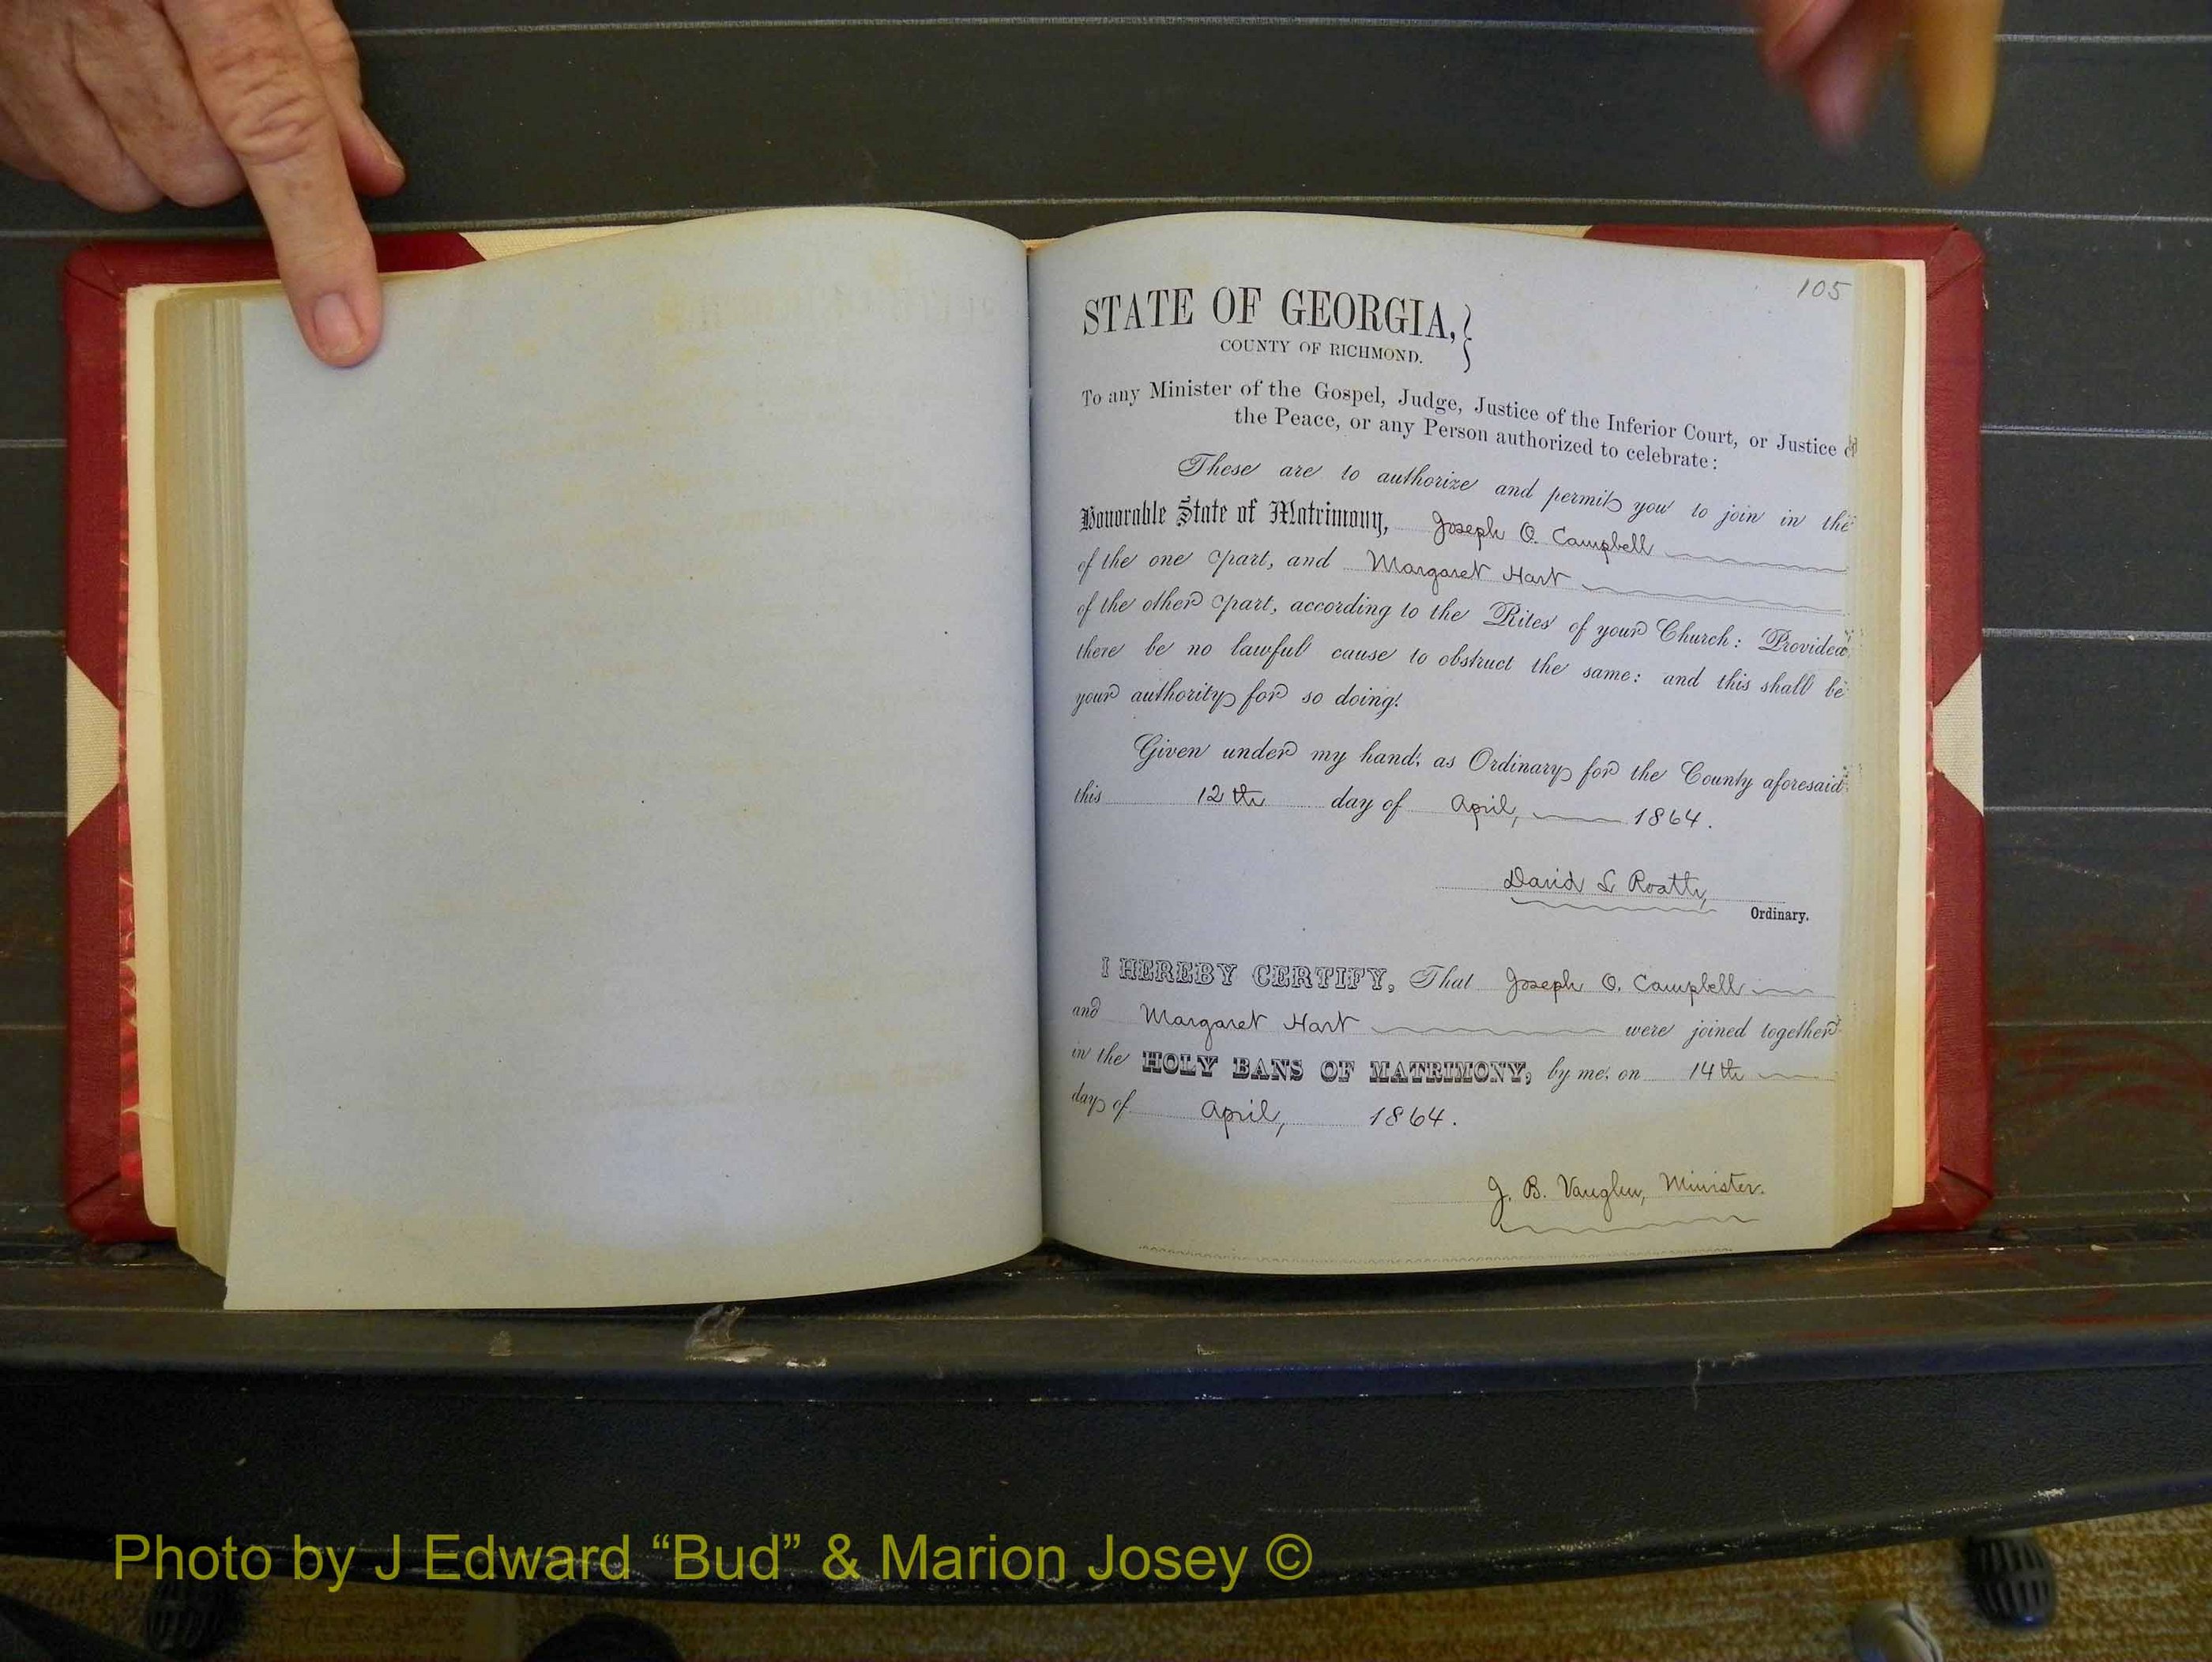 105
STATE OF GEORGIA,}
COUNTY OF RICHMOND.
To any Minister of the Gospel, Judge, Justice of the Inferior Court, or Justice of
the Peace, or any Person authorized to celebrate:
These are to authorize and permit you to join in the
Honorable State of Matrimony, Joseph O. Campbell
of the one part, and Margaret Hart
of the other part, according to the Rites of your Church: Provided
there be no lawful cause to obstruct the same: and this shall be
your authority for so doing.
Given under my hand, as Ordinary for the County aforesaid
this 12th day of April, 1864.
David L Roath,
Ordinary.
I HEREBY CERTIFY, That Joseph O. Campbell
and Margaret Hart were joined together
in the HOLY BANS OF MATRIMONY, by me, on 14th
day of April, 1864.
J. B. Vaughn, Minister.
Photo by J Edward “Bud” & Marion Josey ©